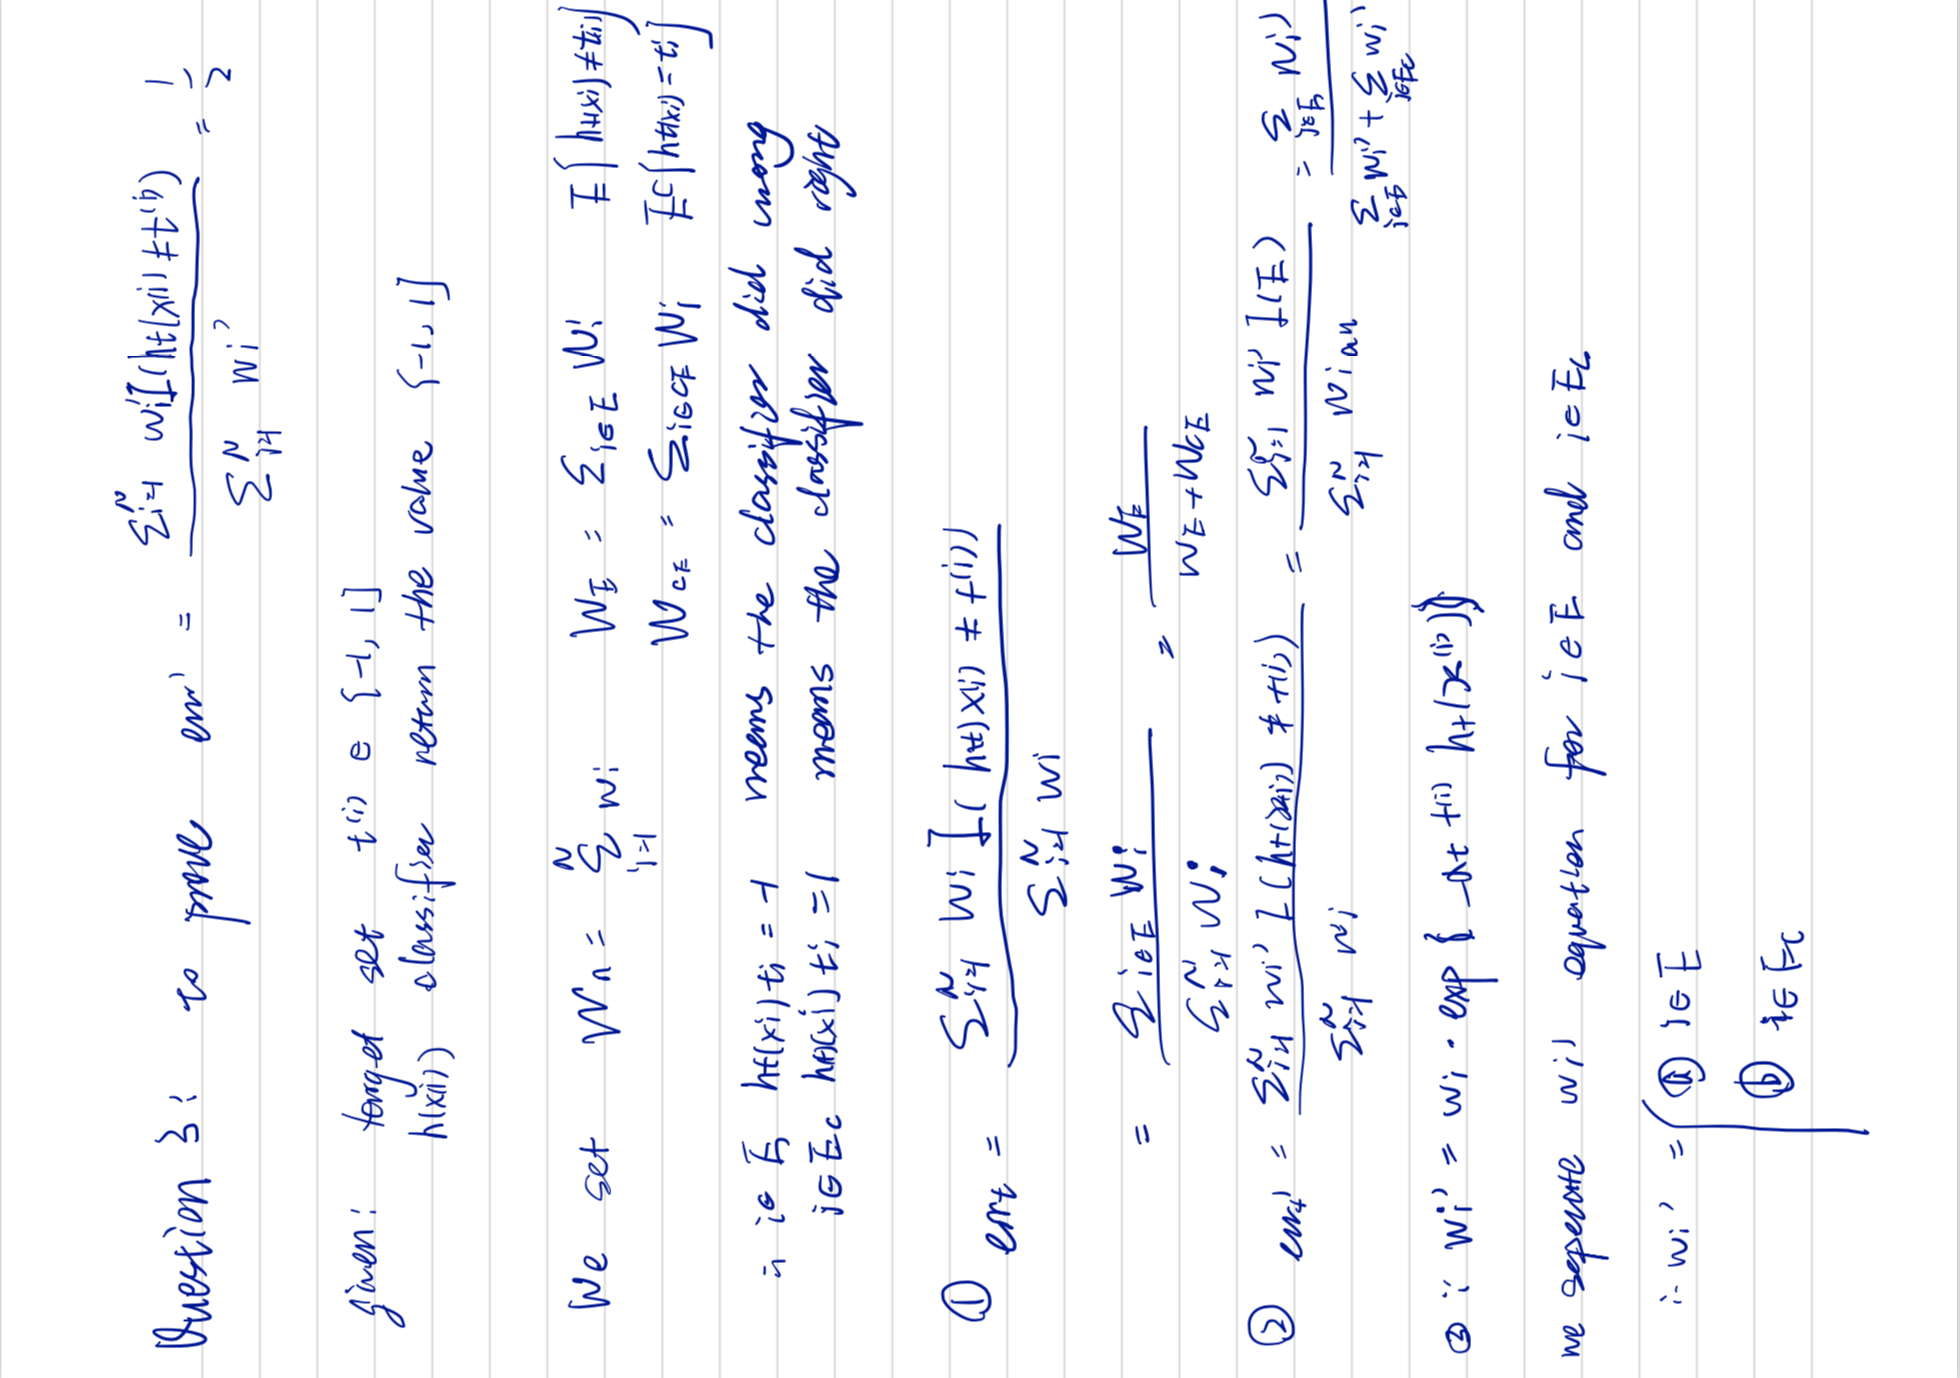 Question 3: to prove err' = Σ_{i=1}^N wi' I(ht(x(i)) ≠ t(i)) / Σ_{i=1}^N wi' = 1/2
given: target set t(i) ∈ {-1, 1}
h(x(i)) classifier return the value {-1, 1}
We set Wn = Σ_{i=1}^N wi WE = Σ_{i∈E} Wi E{ht(xi) ≠ ti}
WCE = Σ_{i∈CE} Wi EC{ht(xi) = ti}
∴ i∈E, ht(xi)ti = -1 means the classifier did wrong
i∈Ec ht(xi)ti = 1 means the classifier did right
① errt = Σ_{i=1}^N wi I(ht(x(i)) ≠ t(i)) / Σ_{i=1}^N wi
= Σ_{i∈E} wi / Σ_{i=1}^N wi = WE / WE + WCE
② errt' = Σ_{i=1}^N wi' I(ht(x(i)) ≠ t(i)) / Σ_{i=1}^N wi = Σ_{i=1}^N wi' I(E) / Σ_{i=1}^N wi = Σ_{i∈E} wi' / Σ_{i∈E} wi' + Σ_{i∈Ec} wi'
③ ∵ wi' = wi · exp{-αt t(i) ht(x(i))}
we seperate wi' equation for i∈E and i∈Ec
∴ wi' = { ⓐ i∈E
ⓑ i∈Ec